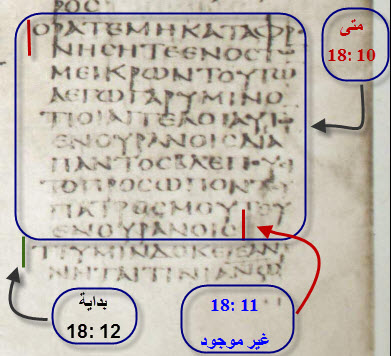 ΡΟC
ΟΡΑΤΕΜΗΚΑΤΑΦΡ
ΝΗCΗΤΕΕΝΟC
ΜΕΙΚΡΩΝΤΟΥΤΩ
ΛΕΓΩΓΑΡΥΜΙΝΟ
ΤΙΟΙΑΓΓΕΛΟΙΑΥΤ
ΕΝΟΥΡΑΝΟΙCΔΙΑ
ΠΑΝΤΟCΒΛΕΠΟΥCΙ
ΤΟΠΡΟCΩΠΟΝΤΟΥ
ΠΑΤΡΟCΜΟΥΤΟΥ
ΕΝΟΥΡΑΝΟΙC
ΤΙΥΜΙΝΔΟΚΕΙΕΑΝ
ΝΗΤΑΙΤΙΝΙΑΝΘΡΩ
متى
18: 10
18: 11
غير موجود
بداية
18: 12